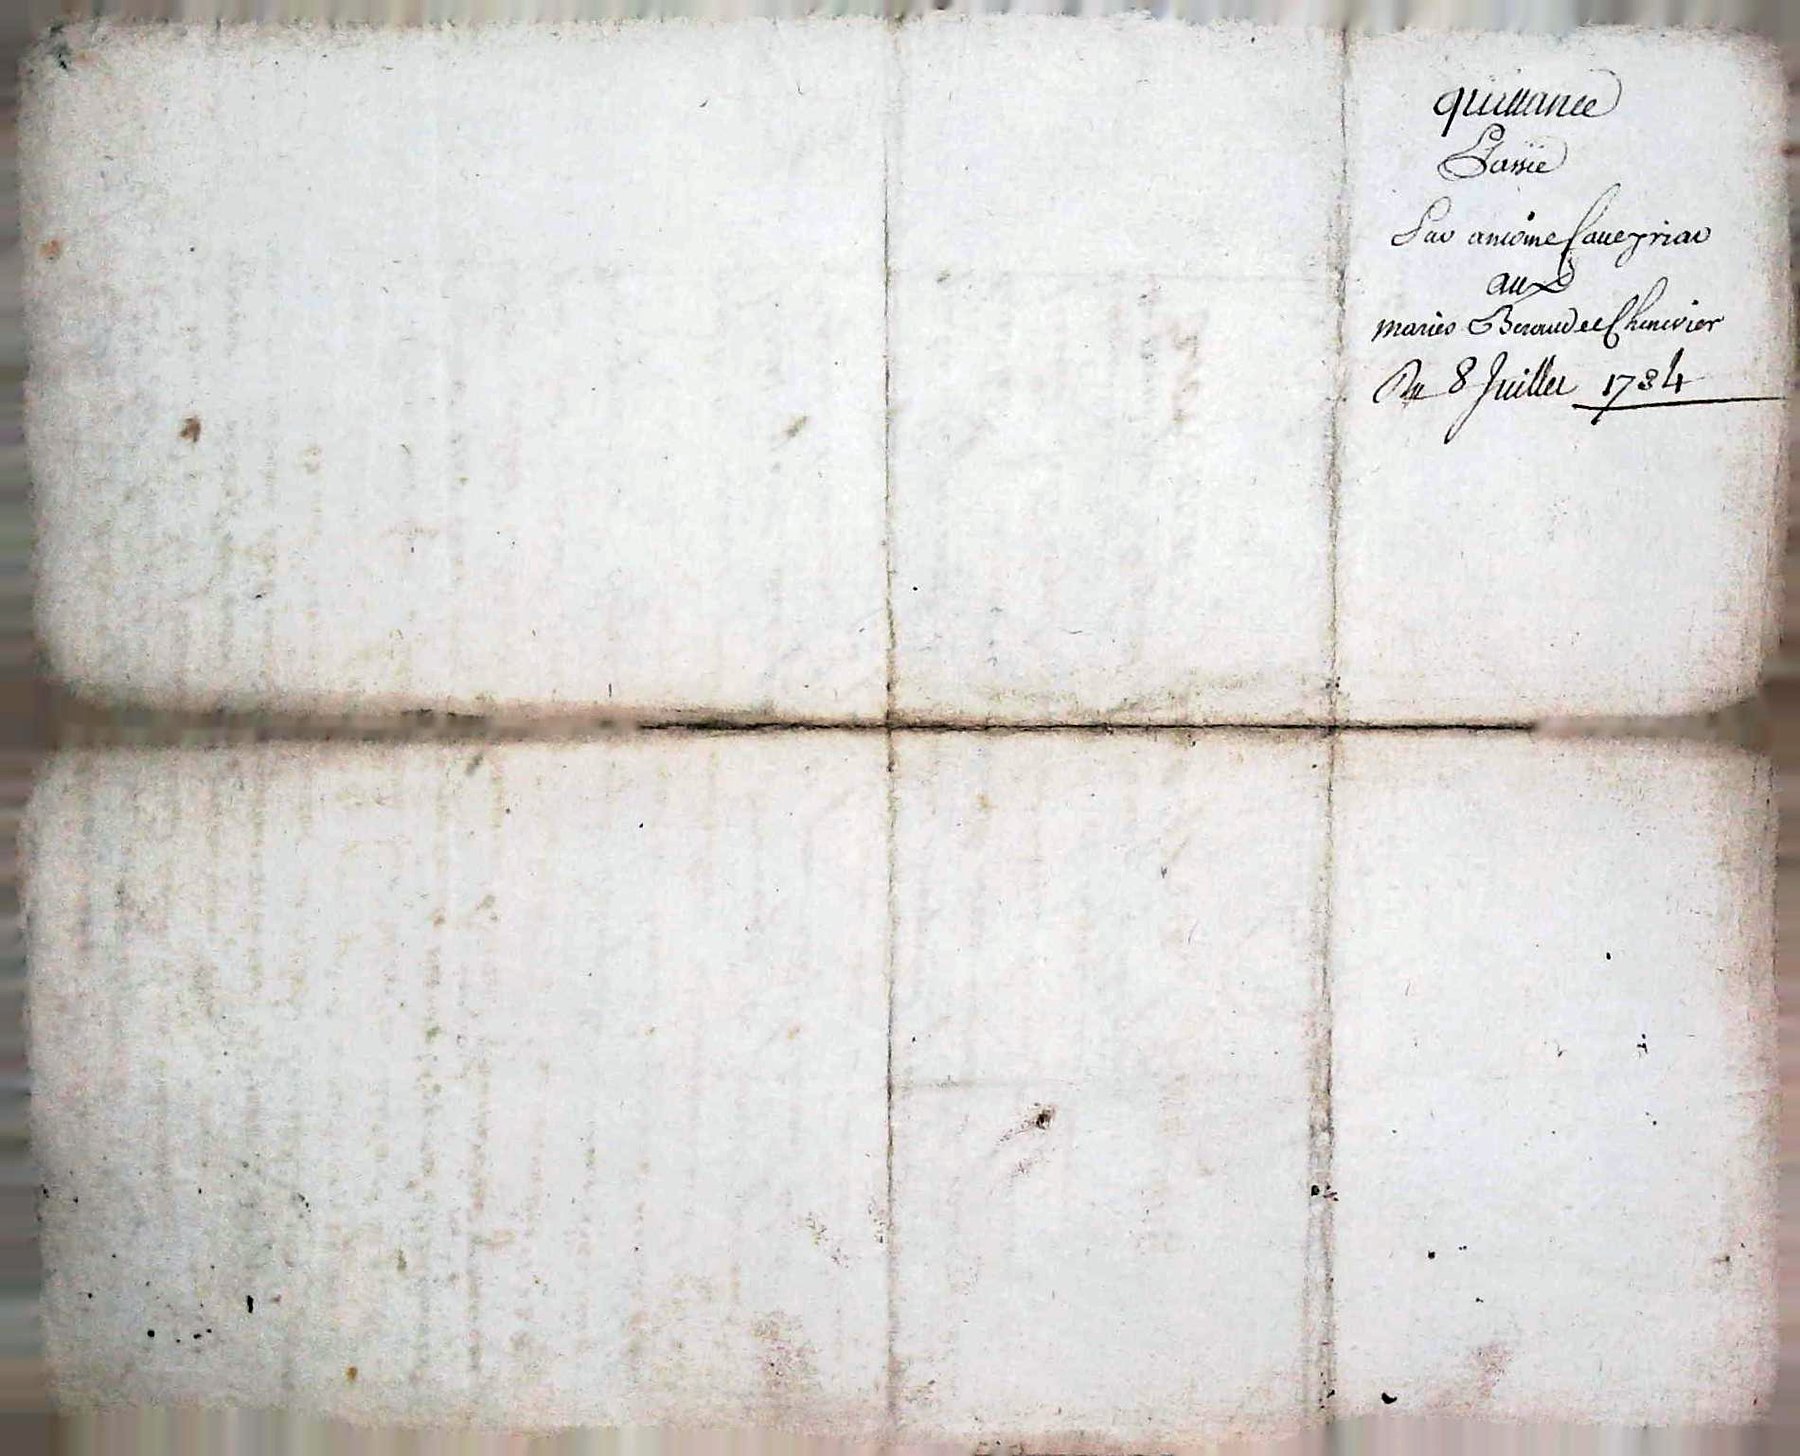 quittance
Passée
Par antoine Caueyriac
aux
mariés Beraud et Chenivier
Du 8 Juillet 1784